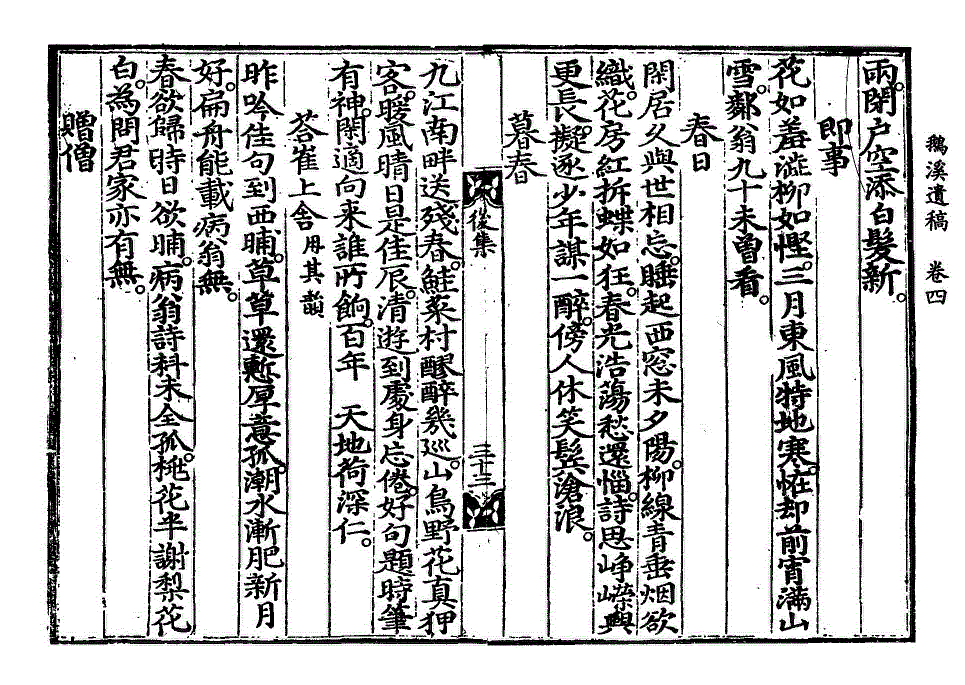 鵝溪遺稿 卷四
雨閉户空添白髮新。
即事
花如羞澁柳如慳。三月東風特地寒。恠却前宵滿山
雪。鄰翁九十未曾看。
春日
閑居久與世相忘。睡起西窓未夕陽。柳線靑垂烟欲
織。花房紅拆蝶如狂。春光浩蕩愁還惱。詩思崢嶸興
更長。擬逐少年謀一醉。傍人休笑鬂滄浪。
暮春
後集
三十三
九江南畔送殘春。鮭菜村醪醉幾巡。山鳥野花眞狎
客。暖風晴日是佳辰。清遊到處身忘倦。好句題時筆
有神。閑適向來誰所餉。百年 天地荷深仁。
答崔上舍用其韻
昨吟佳句到西晡。草草還慙厚意孤。潮水漸肥新月
好。扁舟能載病翁無。
春欲歸時日欲晡。病翁詩料未全孤。桃花半謝梨花
白。為問君家亦有無。
贈僧